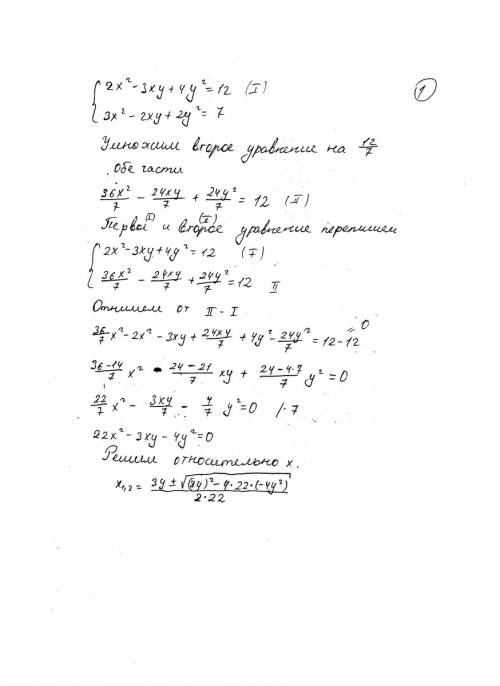 2x² - 3xy + 4y² = 12 (I) 1
3x² - 2xy + 2y² = 7
Умножим второе уравнение на 12/7
Обе части
36x²/7 - 24xy/7 + 24y²/7 = 12 (II)
Первое (I) и второе (II) уравнение перепишем
2x² - 3xy + 4y² = 12 (I)
36x²/7 - 24xy/7 + 24y²/7 = 12 II
Отнимем от II - I
36/7 x² - 2x² - 3xy + 24xy/7 + 4y² - 24y²/7 = 12 - 12 = 0
36-14/7 x² - 24-21/7 xy + 24-4·7/7 y² = 0
22/7 x² - 3xy/7 - 4/7 y² = 0 /·7
22x² - 3xy - 4y² = 0
Решим относительно x.
x₁,₂ = 3y ± √(3y)² - 4·22·(-4y²) / 2·22